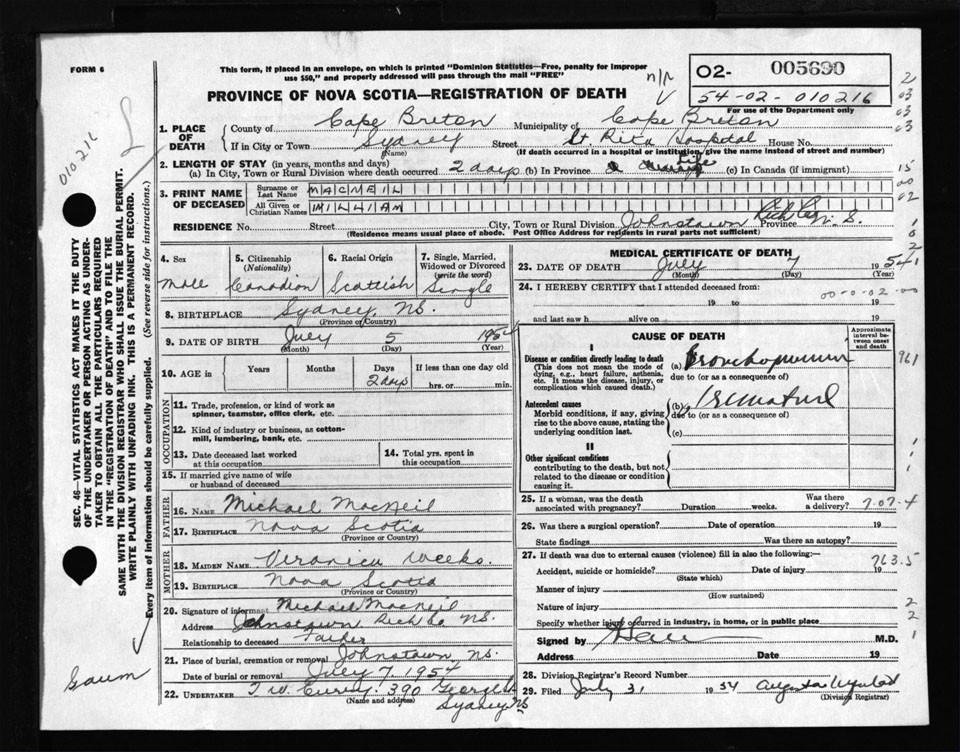 FORM 6
This form, if placed in an envelope, on which is printed "Dominion Statistics—Free, penalty for improper
use $50," and properly addressed will pass through the mail "FREE"
n/r
02- 005690
54-02-010216
For use of the Department only
PROVINCE OF NOVA SCOTIA—REGISTRATION OF DEATH
1. PLACE OF DEATH
County of Cape Breton Municipality of Cape Breton
If in City or Town Sydney Street St. Rita Hospital House No.
(Name) (If death occurred in a hospital or institution, give the name instead of street and number)
2. LENGTH OF STAY (in years, months and days)
(a) In City, Town or Rural Division where death occurred 2 days (b) In Province Life (c) In Canada (if immigrant)
3. PRINT NAME OF DECEASED
Surname or Last Name MACNEIL
All Given or Christian Names WILLIAM
RESIDENCE No. Street City, Town or Rural Division Johnstown Rich Co. Province N. S.
(Residence means usual place of abode. Post Office Address for residents in rural parts not sufficient)
4. Sex Male
5. Citizenship (Nationality) Canadian
6. Racial Origin Scottish
7. Single, Married, Widowed or Divorced (write the word) Single
8. BIRTHPLACE Sydney, NS.
(Province or Country)
9. DATE OF BIRTH July 5 1954
(Month) (Day) (Year)
10. AGE in Years Months Days 2 days If less than one day old hrs. or min.
OCCUPATION
11. Trade, profession, or kind of work as
spinner, teamster, office clerk, etc.
12. Kind of industry or business, as cotton-
mill, lumbering, bank, etc.
13. Date deceased last worked
at this occupation
14. Total yrs. spent in
this occupation
15. If married give name of wife
or husband of deceased
FATHER
16. Name Michael MacNeil
17. Birthplace Nova Scotia
(Province or Country)
MOTHER
18. Maiden Name Veronica Weeks.
19. Birthplace Nova Scotia
(Province or Country)
20. Signature of informant Michael MacNeil
Address Johnstown Rich Co NS.
Relationship to deceased Father
21. Place of burial, cremation or removal Johnstown NS.
Date of burial or removal July 7. 1954
22. Undertaker T. W. Curry. 390 George St
(Name and address) Sydney NS
MEDICAL CERTIFICATE OF DEATH
23. DATE OF DEATH July 7 1954
(Month) (Day)
24. I HEREBY CERTIFY that I attended deceased from:
00-0-02-00
19 to 19
and last saw h alive on 19
CAUSE OF DEATH
Approximate interval between onset and death
I
Disease or condition directly leading to death
(This does not mean the mode of
dying, e.g., heart failure, asthenia,
etc. It means the disease, injury, or
complication which caused death.)
(a)
due to (or as a consequence of)
961
Antecedent causes
Morbid conditions, if any, giving
rise to the above cause, stating the
underlying condition last.
(b)
due to (or as a consequence of)
(c)
II
Other significant conditions
contributing to the death, but not
related to the disease or condition
causing it.
25. If a woman, was the death
associated with pregnancy? Duration weeks. Was there
a delivery? 7.07.4
26. Was there a surgical operation? Date of operation 19
State findings Was there an autopsy?
27. If death was due to external causes (violence) fill in also the following:
Accident, suicide or homicide? Date of injury 19
(State which)
763.5
Manner of injury
(How sustained)
Nature of injury
Specify whether injury occurred in industry, in home, or in public place
Signed by M.D.
Address Date 19
28. Division Registrar's Record Number
29. Filed July 31 1954
(Division Registrar)
SEC. 46—VITAL STATISTICS ACT MAKES IT THE DUTY
OF THE UNDERTAKER OR PERSON ACTING AS UNDER-
TAKER TO OBTAIN ALL THE PARTICULARS REQUIRED
IN THE "REGISTRATION OF DEATH" AND TO FILE THE
SAME WITH THE DIVISION REGISTRAR WHO SHALL ISSUE THE BURIAL PERMIT.
WRITE PLAINLY WITH UNFADING INK. THIS IS A PERMANENT RECORD.
Every item of information should be carefully supplied. (See reverse side for instructions.)
010216